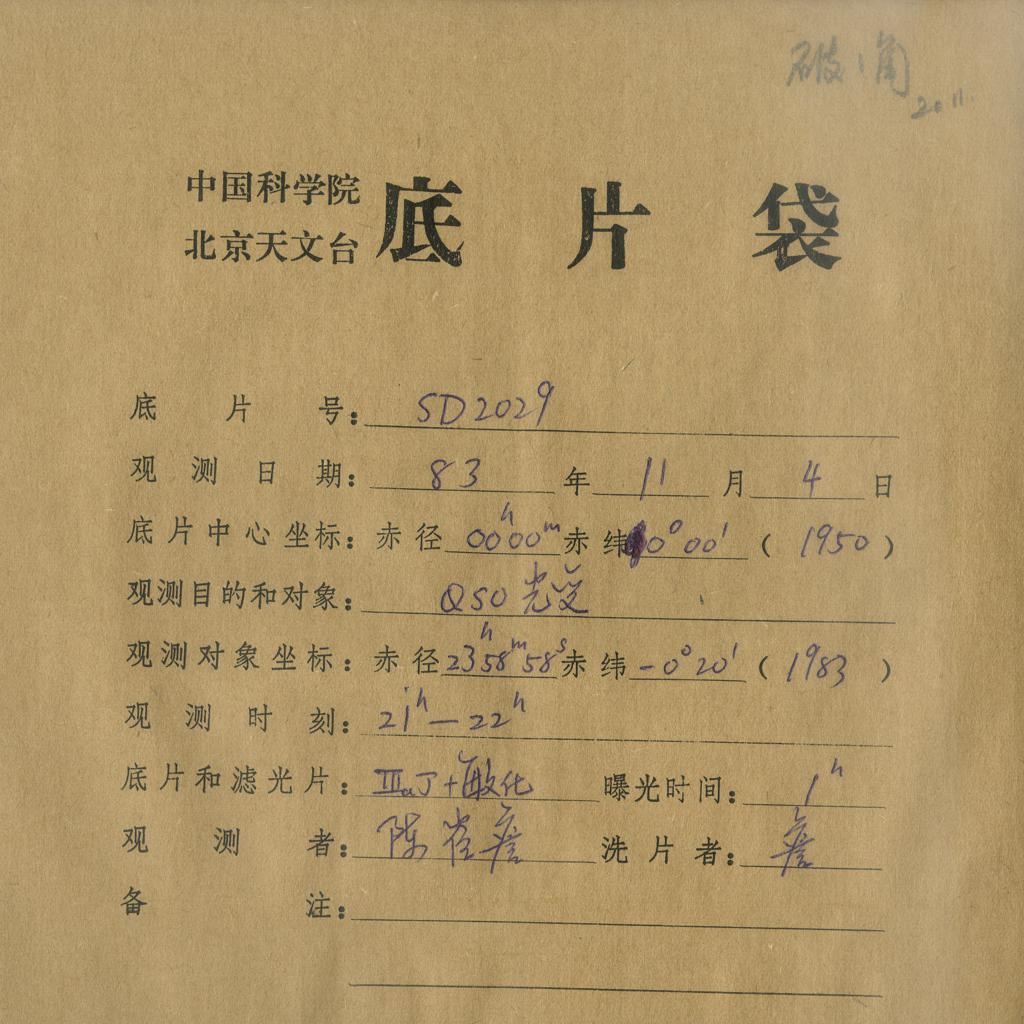 破角
2011.
中国科学院
北京天文台
底片袋
底片号: SD2029
观测日期: 83年11月4日
底片中心坐标: 赤径 00ʰ00ᵐ 赤纬 0°00′ (1950)
观测目的和对象: QSO 光变
观测对象坐标: 赤径 23ʰ58ᵐ58ˢ 赤纬 -0°20′ (1983)
观测时刻: 21ʰ—22ʰ
底片和滤光片: ⅢaJ+敏化 曝光时间: 1ʰ
观测者: 陈 詹 洗片者: 詹
备注: